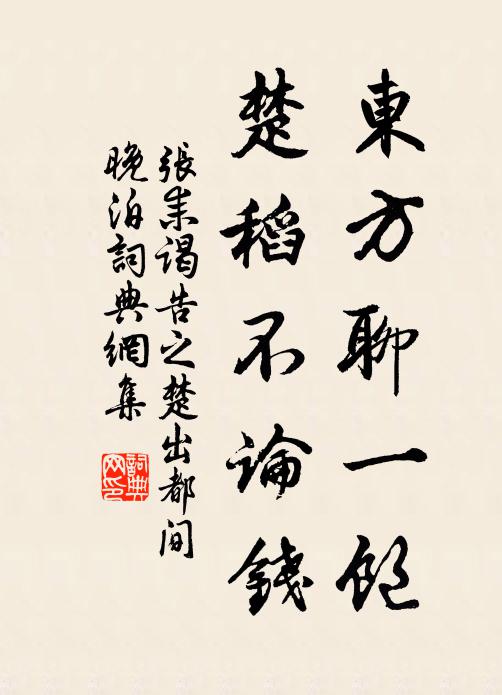 東方聊一飽
楚稻不論錢
張耒謁告之楚出都間
晚泊詞典網集
詞典
网印